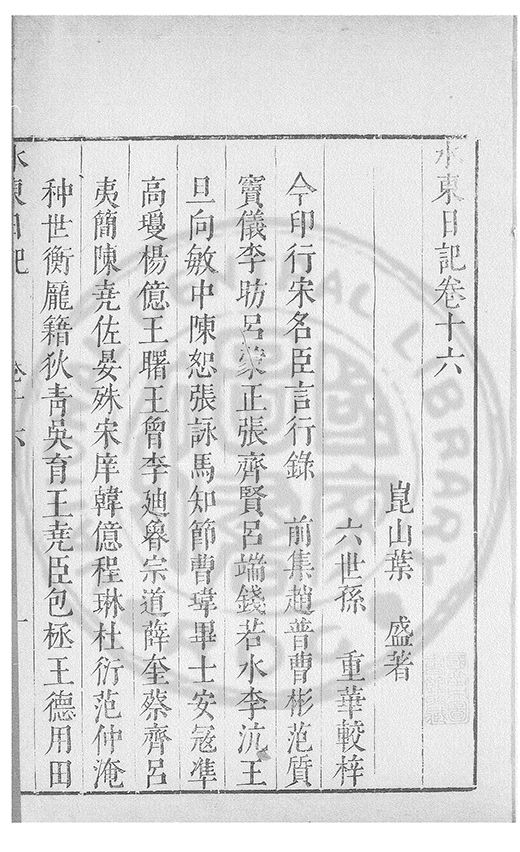 水東日記卷十六
崑山葉　盛著
六世孫　重華較梓
今印行宋名臣言行錄　前集趙普曹彬范質
竇儀李昉呂蒙正張齊賢呂端錢若水李沆王
旦向敏中陳恕張詠馬知節曹瑋畢士安寇準
高瓊楊億王曙王曾李廸魯宗道薛奎蔡齊呂
夷簡陳堯佐晏殊宋庠韓億程琳杜衍范仲淹
种世衡龐籍狄青吳育王堯臣包拯王德用田
水東日記　卷十六　一